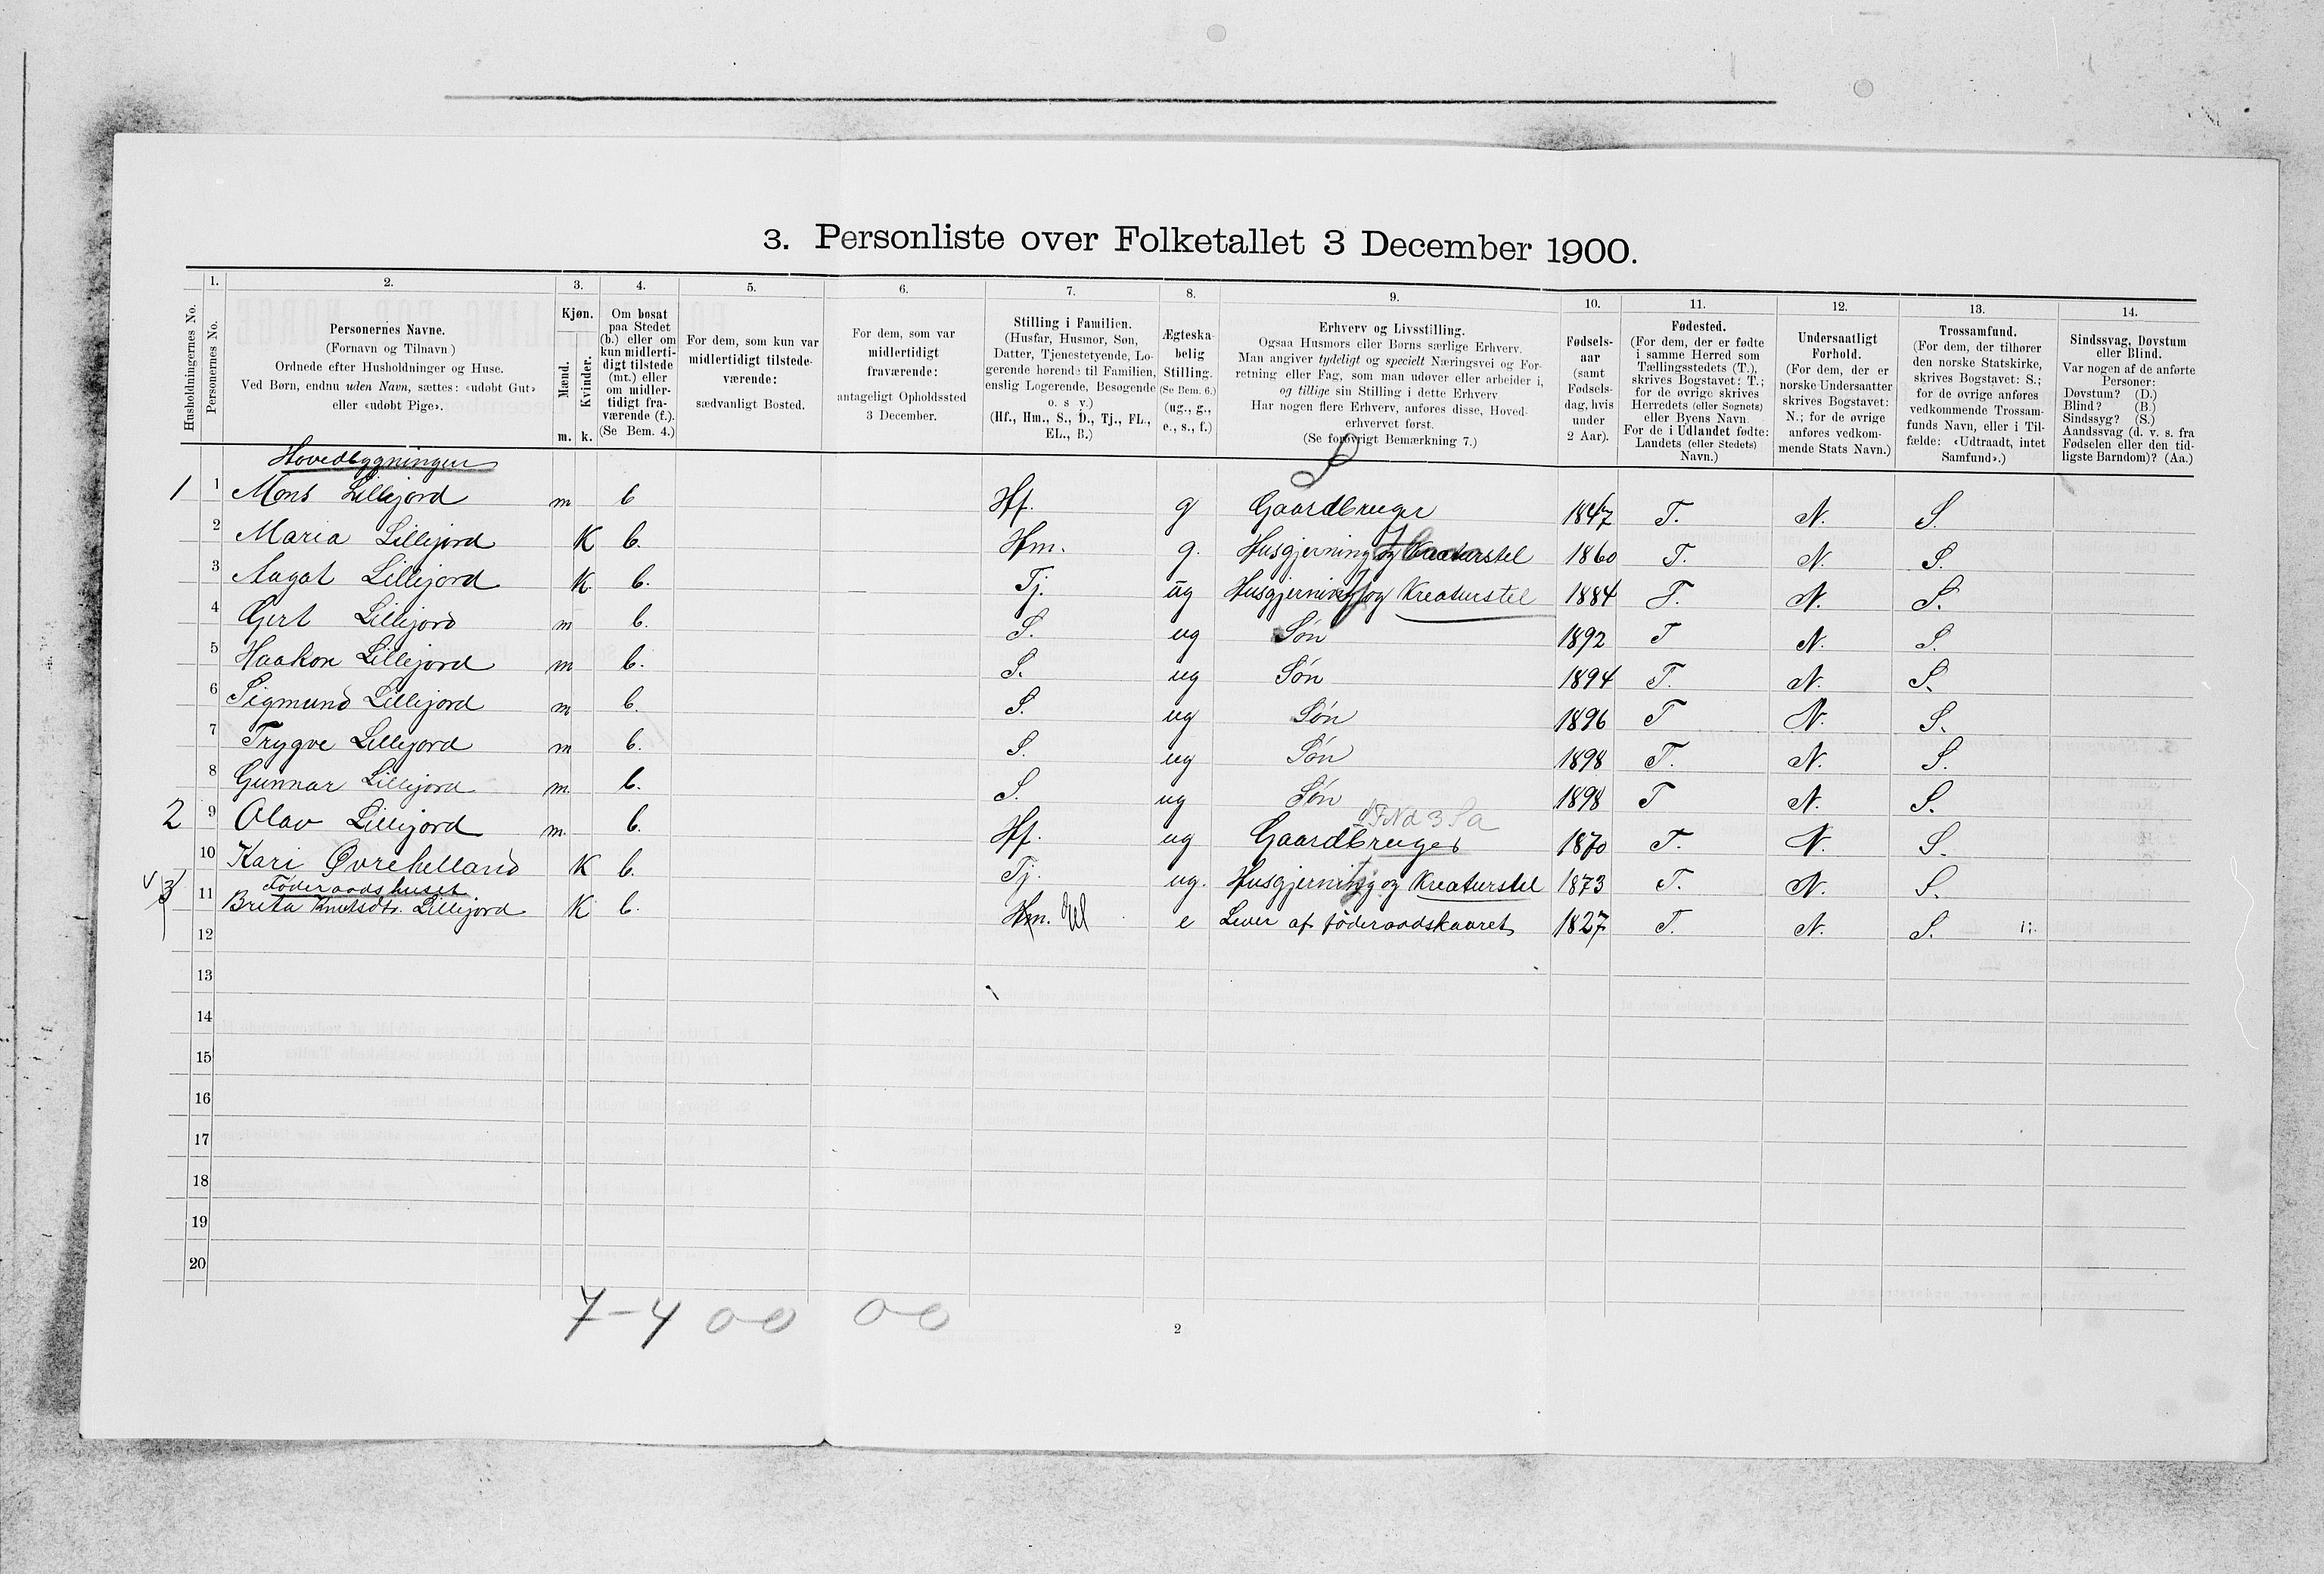 3. Personliste over Folketallet 3 December 1900.
1. 2. 3. 4. 5. 6. 7. 8. 9. 10. 11. 12. 13. 14.
Husholdningernes No.
Personernes No.
Personernes Navne.
(Fornavn og Tilnavn)
Ordnede efter Husholdninger og Huse.
Ved Børn, endnu uden Navn, sættes: «udøbt Gut»
eller «udøbt Pige».
Kjøn.
Mænd.
Kvinder.
m. k.
Om bosat
paa Stedet
(b.) eller om
kun midlerti-
digt tilstede
(mt.) eller
om midler-
tidigt fra-
værende (f.).
(Se Bem. 4.)
For dem, som kun var
midlertidigt tilstede-
værende:
sædvanligt Bosted.
For dem, som var
midlertidigt
fraværende:
antageligt Opholdssted
3 December.
Stilling i Familien.
(Husfar, Husmor, Søn,
Datter, Tjenestetyende, Lo-
gerende hørende til Familien,
enslig Logerende, Besøgende
o. s v.)
(Hf., Hm., S., D., Tj., FL.,
EL., B.)
Ægteska-
belig
Stilling.
(Se Bem. 6.)
(ug., g.,
e., s., f.)
Erhverv og Livsstilling.
Ogsaa Husmors eller Børns særlige Erhverv.
Man angiver tydeligt og specielt Næringsvei og For-
retning eller Fag, som man udøver eller arbeider i,
og tillige sin Stilling i dette Erhverv
Har nogen flere Erhverv, anføres disse, Hoved-
erhvervet først.
(Se forøvrigt Bemærkning 7.)
Fødsels-
aar
(samt
Fødsels-
dag, hvis
under
2 Aar).
Fødested.
(For dem, der er fødte
i samme Herred som
Tællingsstedets (T.),
skrives Bogstavet: T.;
for de øvrige skrives
Herredets (eller Sognets)
eller Byens Navn
For de i Udlandet fødte:
Landets (eller Stedets)
Navn.)
Undersaatligt
Forhold.
(For dem, der er
norske Undersaatter
skrives Bogstavet:
N.; for de øvrige
anføres vedkom-
mende Stats Navn.)
Trossamfund.
(For dem, der tilhører
den norske Statskirke,
skrives Bogstavet: S.;
for de øvrige anføres
vedkommende Trossam-
funds Navn, eller i Til-
fælde: «Udtraadt, intet
Samfund».)
Sindssvag, Døvstum
eller Blind.
Var nogen af de anførte
Personer:
Døvstum? (D.)
Blind? (B.)
Sindssyg? (S.)
Aandssvag (d. v. s. fra
Fødselen eller den tid-
ligste Barndom)? (Aa.)
Hovedbygningen
1 1 Mons Lillejord m b Hf. g Gaardbruger 1847 T. N. S.
2 Maria Lillejord K b. Hm. g. Husgjerning og Kreaturstel 1860 T. N. S.
3 Aagot Lillejord K b. Tj. ug Husgjerning og Kreaturstel 1884 T. N. S.
4 Gert Lillejord m b. S. ug Søn 1892 T N. S.
5 Haakon Lillejord m b. S. ug Søn 1894 T. N. S.
6 Sigmund Lillejord m b. S. ug Søn 1896 T N. S.
7 Trygve Lillejord m b. S. ug Søn 1898 T. N. S.
8 Gunnar Lillejord m. b. S. ug Søn 1898 T N. S.
2 9 Olav Lillejord m b. Hf. ug Gaardbruger 1870 T. N. S.
10 Kari Øvrehelland K b. Tj. ug. Husgjerning og Kreaturstel 1873 T. N. S.
Føderaadshuset
3 11 Brita Knutsdtr. Lillejord K b. Hm. El e Lever af føderaadskaaret 1827 T. N. S.
12
13
14
15
16
17
18
19
20
7-4 0 0 0 0
2